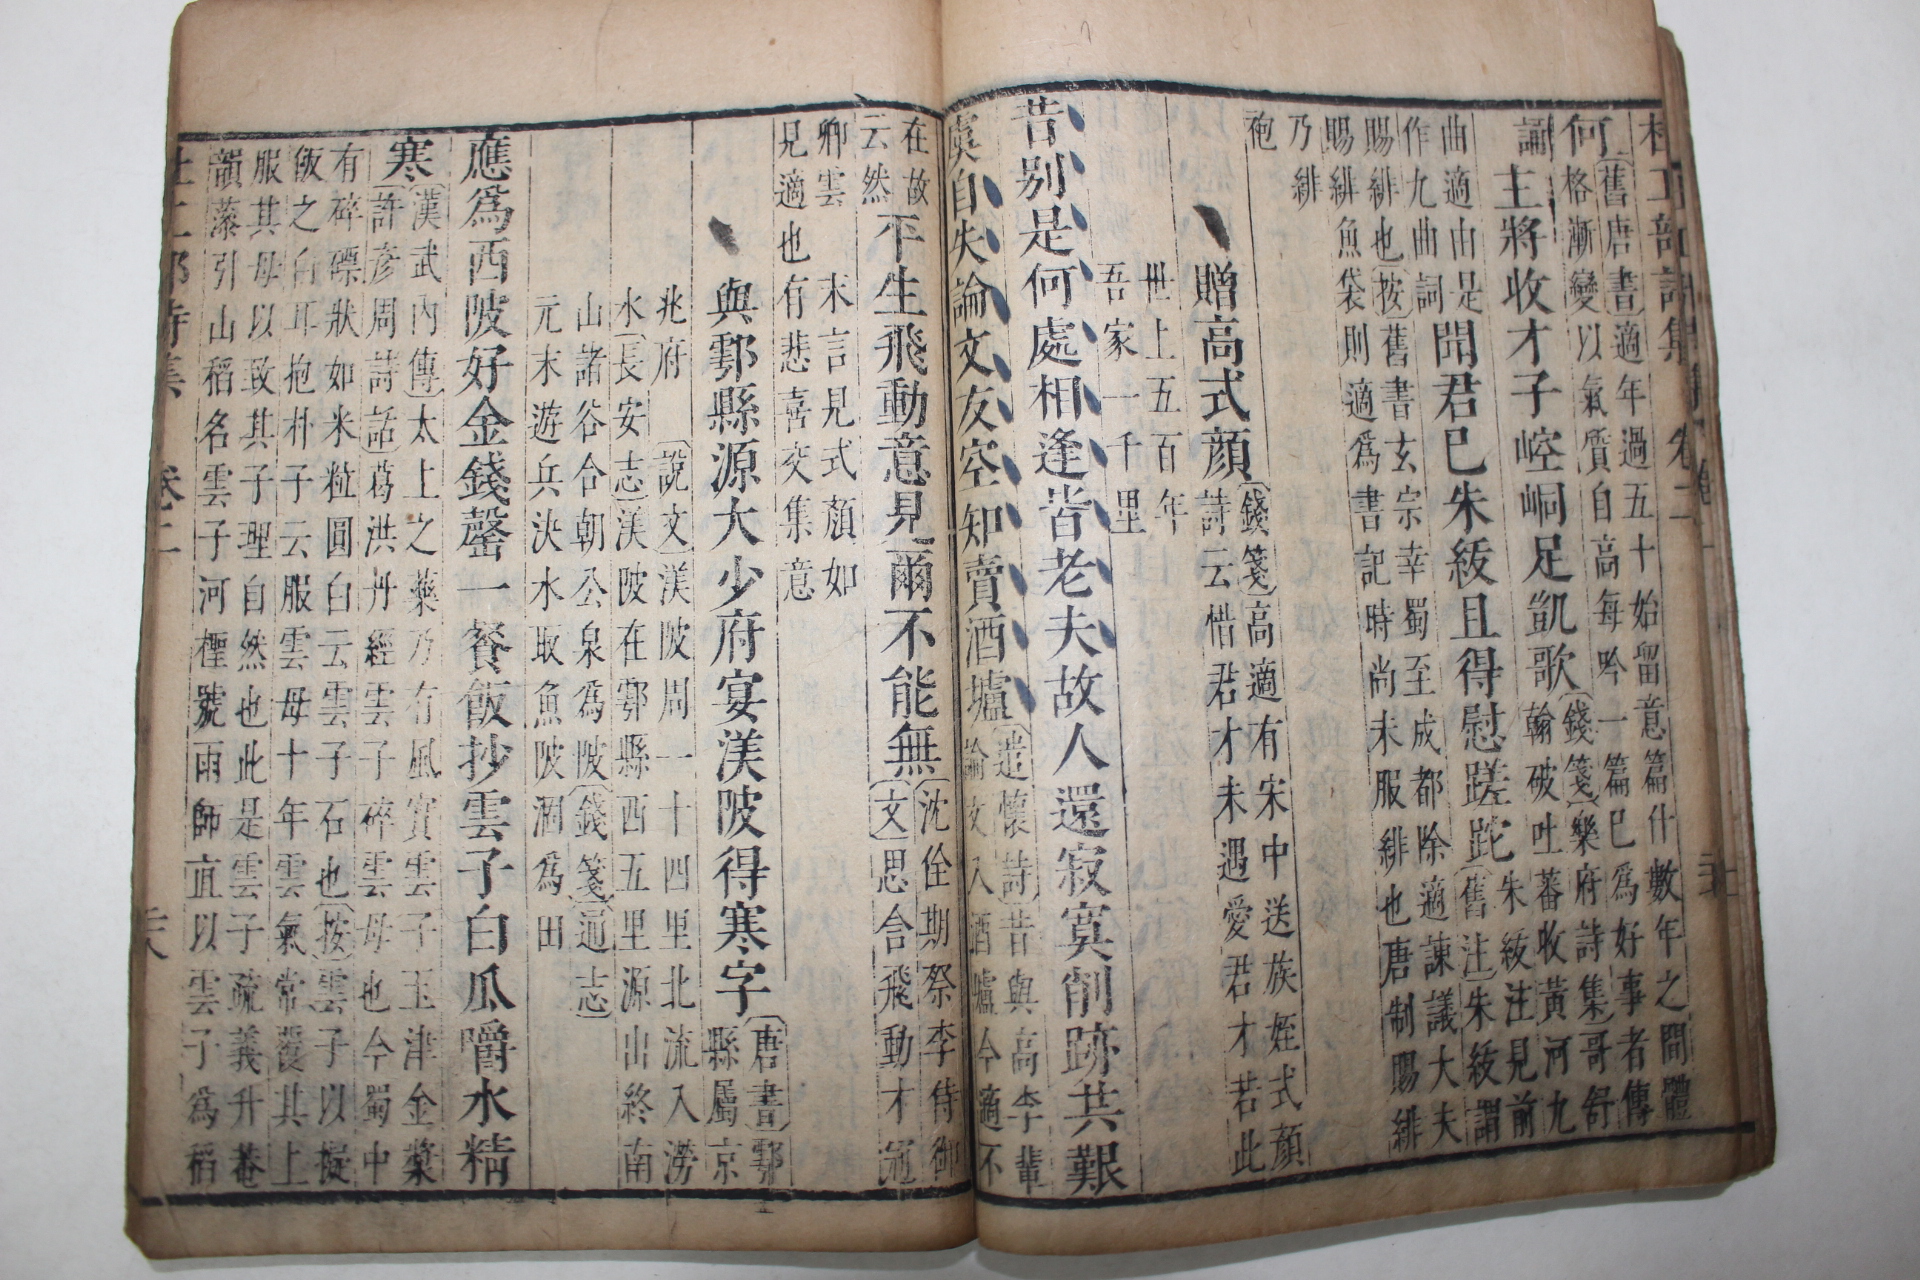 杜工部詩集 卷二
何〔舊唐書〕適年過五十始留意篇什數年之間體
格漸變以氣質自高每吟一篇已爲好事者傳
誦 主將收才子崆峒足凱歌〔錢箋〕樂府詩集哥舒
翰破吐蕃收黃河九
曲適由是
作九曲詞 聞君已朱紱且得慰蹉跎 朱紱注見前
〔舊注〕朱紱謂
賜緋也〔按〕舊書玄宗幸蜀至成都除適諫議大夫
賜緋魚袋則適爲書記時尚未服緋也唐制賜緋
乃緋
袍
贈高式顔〔錢箋〕高適有宋中送族姪式顔
詩云惜君才未遇愛君才若此
世上五百年
吾家一千里
昔别是何處相逢皆老夫故人還寂寞削跡共艱
虞自失論文友空知賣酒壚〔遣懷詩〕昔與高李輩
論交入酒壚今適不
在故
云然 平生飛動意見爾不能無〔沈佺期祭李侍御
文〕思含飛動才冠
卿雲 末言見式顔如
見適也有悲喜交集意
與鄠縣源大少府宴渼陂得寒字〔唐書〕鄠
縣屬京
兆府 〔說文〕渼陂周一十四里北流入澇
水〔長安志〕渼陂在鄠縣西五里源出終南
山諸谷合朝公泉爲陂〔錢箋〕〔通志〕
元末遊兵決水取魚陂涸爲田
應爲西陂好金錢罄一餐飯抄雲子白瓜嚼水精
寒〔漢武内傳〕太上之藥乃有風實雲子玉津金漿
〔許彦周詩話〕葛洪丹經雲子碎雲母也今蜀中
有碎磲狀如米粒圓白云雲子石也〔按〕雲子以擬
飯之白耳抱朴子云服雲母十年雲氣常覆其上
服其母以致其子理自然也此是雲子疏義升菴
韻藻引山稻名雲子河檉號雨師直以雲子爲稻
杜工部詩集 卷二 二六